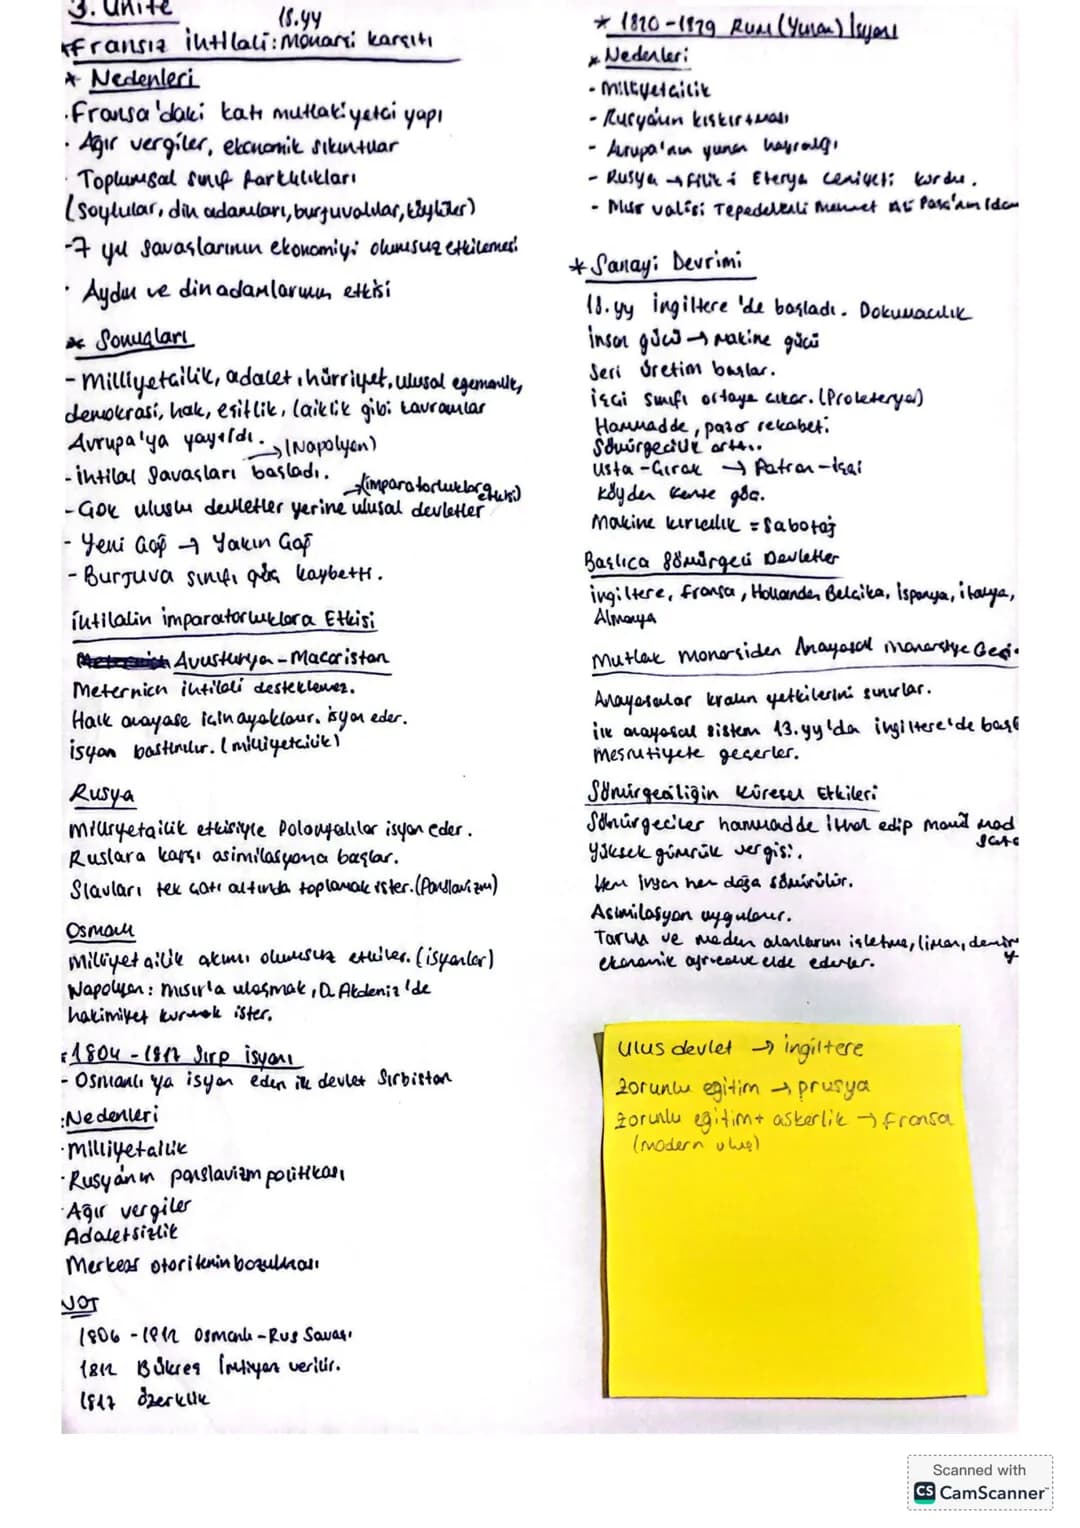 3. ünite
18.yy
*Fransız ihtilali: Monarşi karşıtı
* Nedenleri
·Fransa'daki katı mutlakiyetçi yapı
· Ağır vergiler, ekonomik sıkıntılar
· Toplumsal sınıf farklılıkları
(Soylular, din adamları, burjuvalılar, köylüler)
-7 yıl savaşlarının ekonomiyi olumsuz etkilemesi
· Aydın ve din adamlarının etkisi
* Sonuçları
- Milliyetçilik, adalet, hürriyet, ulusal egemenlik,
demokrasi, hak, eşitlik, laiklik gibi kavramlar
Avrupa'ya yayıldı.
→(Napolyon)
- ihtilal Savaşları başladı.
→(imparatorluklara etkisi)
-Çok uluslu devletler yerine ulusal devletler
- Yeni Çağ → Yakın Çağ
- Burjuva sınıfı güç kaybetti.
ihtilalin imparatorluklara Etkisi
Avusturya-Macaristan
Meternich ihtilali desteklemez.
Halk anayasa için ayaklanır. isyan eder.
isyan bastırılır. (milliyetcilik)
Rusya
Milliyetçilik etkisiyle Polonyalılar isyan eder.
Ruslara karşı asimilasyona başlar.
Slavları tek çatı altında toplamak ister. (Panslavizm)
Osmanlı
Milliyetçilik akımı olumsuz etkiler. (isyanlar)
Napolyon: mısır'a ulaşmak, D. Akdeniz'de
hakimiyet kurmak ister.
*1804-1817 Sırp isyanı
- Osmanlı'ya isyan eden ilk devlet Sırbistan
:Nedenleri
·Milliyetcilik
·Rusya'nın panslavizm politikası
·Ağır vergiler
Adaletsizlik
Merkezi otoritenin bozulması
NOT
1806-1812 Osmanlı-Rus Savaşı
1812 Bükreş İmtiyaz verilir.
1817 özerklik
* 1820-1829 Rum (Yunan) İsyanı
* Nedenleri
- Milliyetcilik
- Rusya'nın kışkırtması
- Avrupa'nın yunan hayranlığı
- Rusya → Filik-i Eterya cemiyeti kurdu.
- Mısır valisi Tepedelenli Mehmet Ali Paşa'nın idam
* Sanayi Devrimi
18.yy İngiltere'de başladı. Dokumacılık
İnsan gücü → Makine gücü
Seri üretim başlar.
işçi sınıfı ortaya çıkar. (Proleterya)
Hammadde, pazar rekabeti
Sömürgecilik arttı.
Usta-Çırak → Patron-işçi
Köyden kente göç.
Makine kırıcılık = Sabotaj
Başlıca Sömürgeci Devletler
ingiltere, fransa, Hollanda, Belçika, İspanya, italya,
Almanya
Mutlak monarşiden Anayasal monarşiye Geçi
Anayasalar kralın yetkilerini sınırlar.
ilk anayasal sistem 13.yy'da ingiltere'de başl
Meşrutiyete geçerler.
Sömürgeciliğin Küresel Etkileri
Sömürgeciler hammadde ithal edip mamül mad
sata
Yüksek gümrük vergisi.
Hem insan hem doğa sömürülür.
Asimilasyon uygulanır.
Tarım ve maden alanlarını işletme, liman, demir
y
ekonomik ayrıcalık elde ederler.
Ulus devlet → ingiltere
Zorunlu eğitim → prusya
Zorunlu eğitim+ askerlik → fransa
(modern ulus)
Scanned with
CS CamScanner